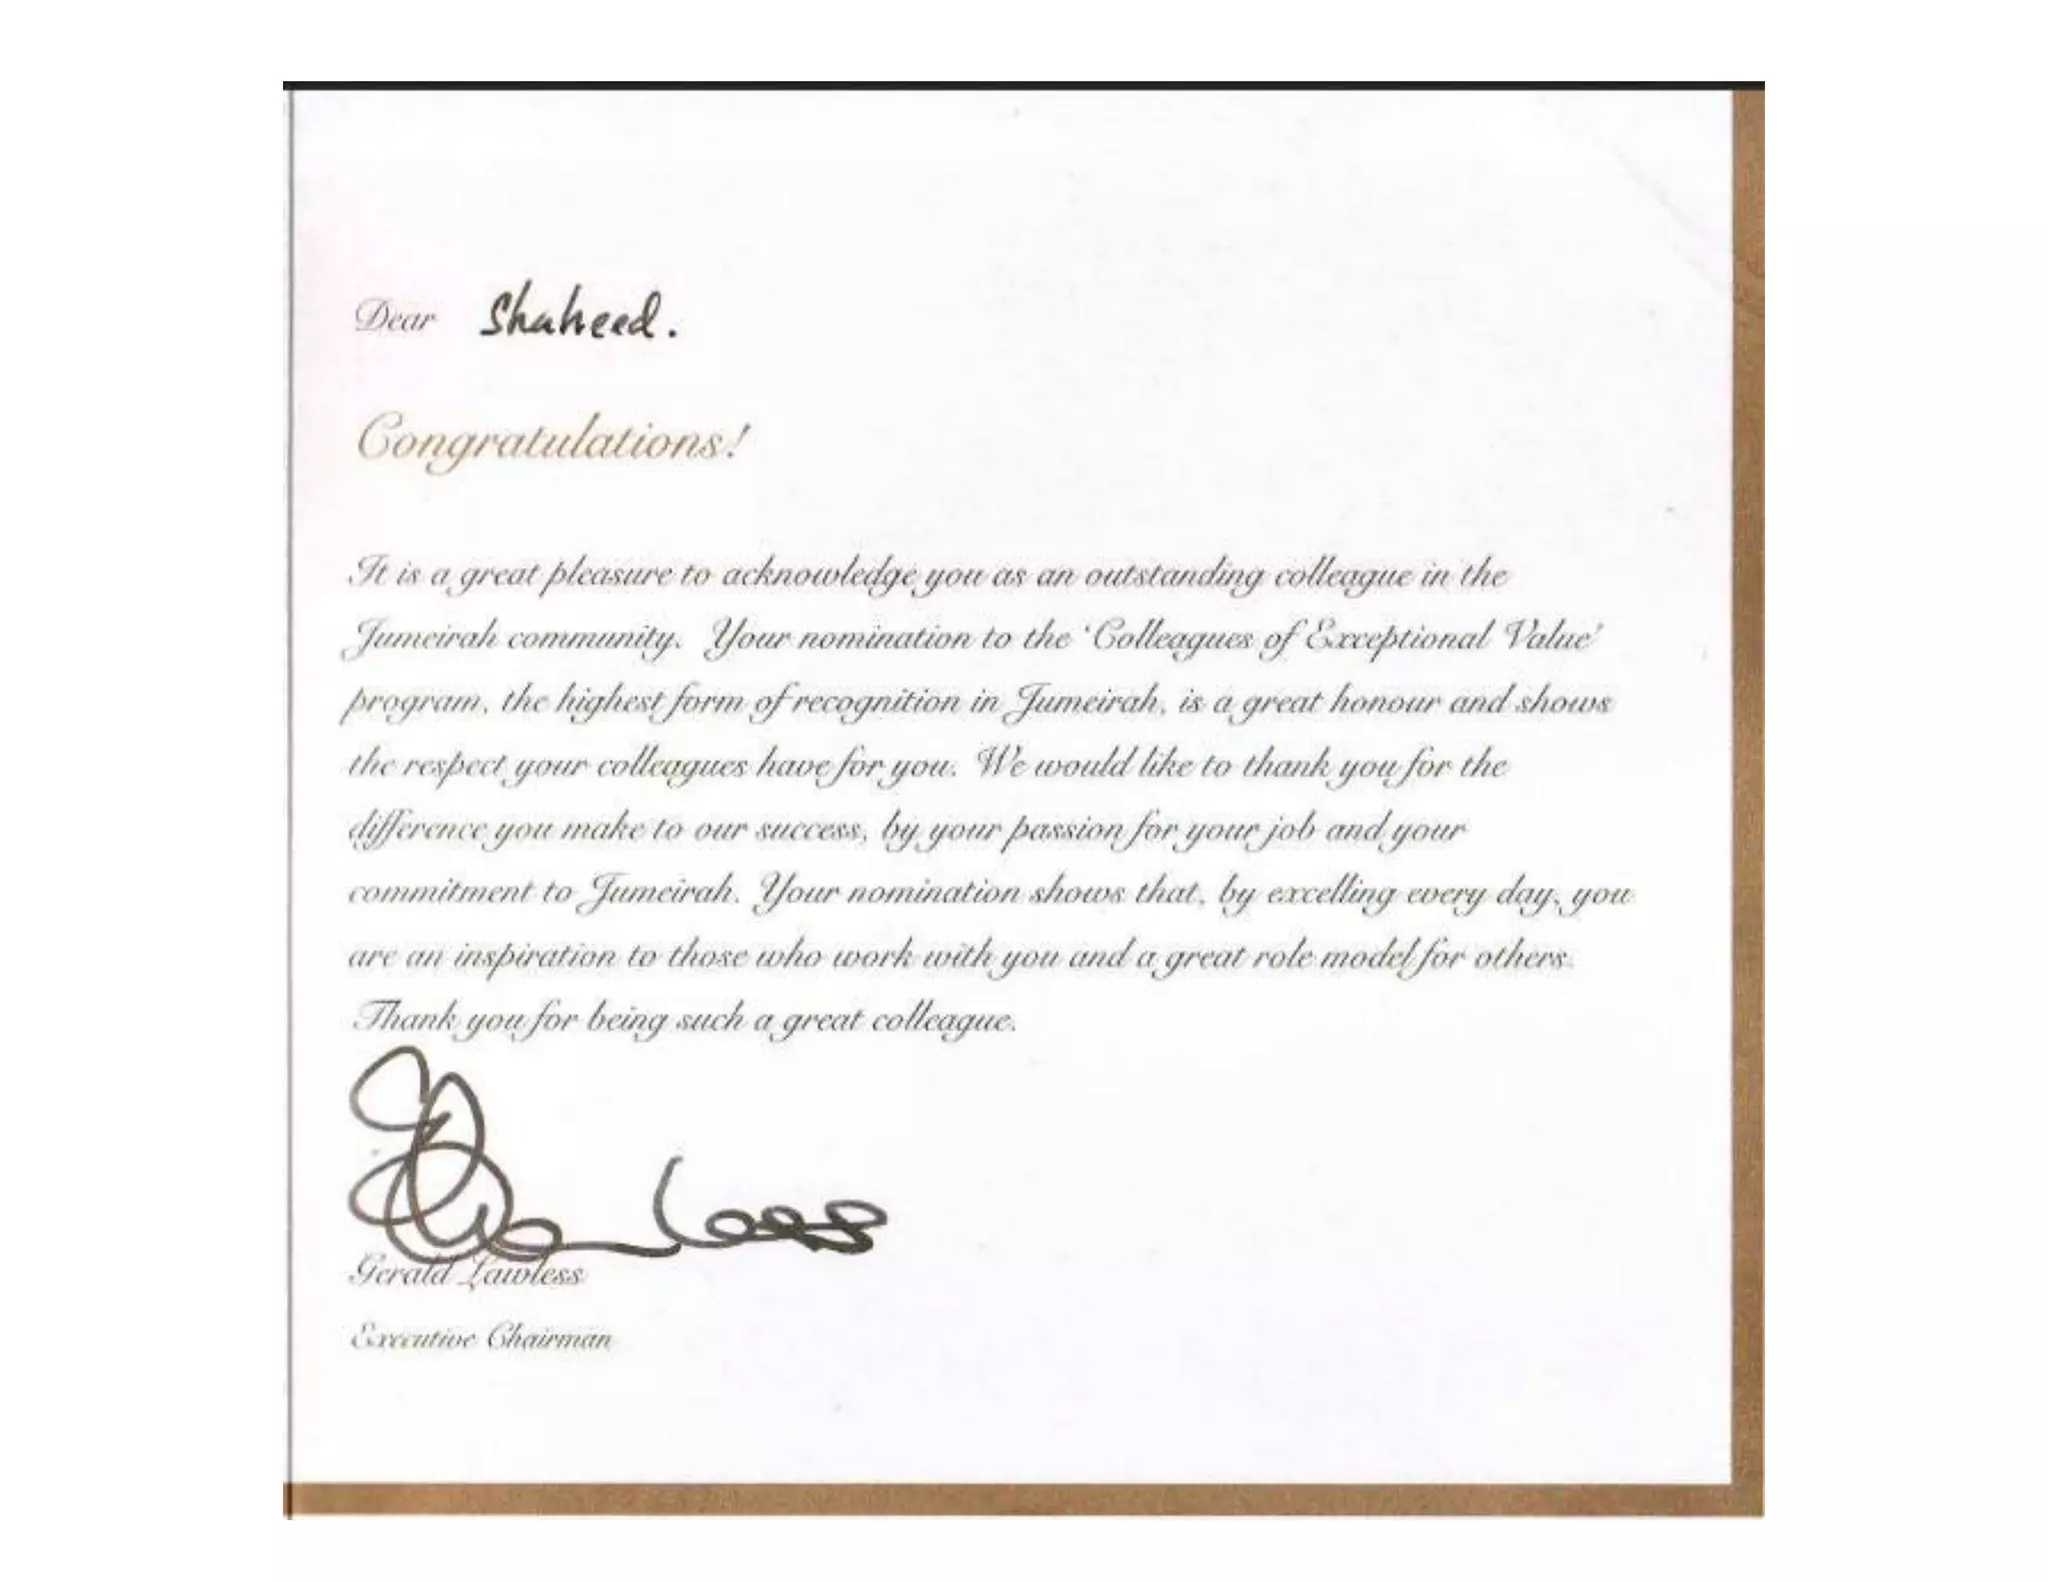 Dear Shaheed.
Congratulations!
It is a great pleasure to acknowledge you as an outstanding colleague in the
Jumeirah community. Your nomination to the 'Colleagues of Exceptional Value'
program, the highest form of recognition in Jumeirah, is a great honour and shows
the respect your colleagues have for you. We would like to thank you for the
difference you make to our success, by your passion for your job and your
commitment to Jumeirah. Your nomination shows that, by excelling every day, you
are an inspiration to those who work with you and a great role model for others.
Thank you for being such a great colleague.
Gerald Lawless
Executive Chairman